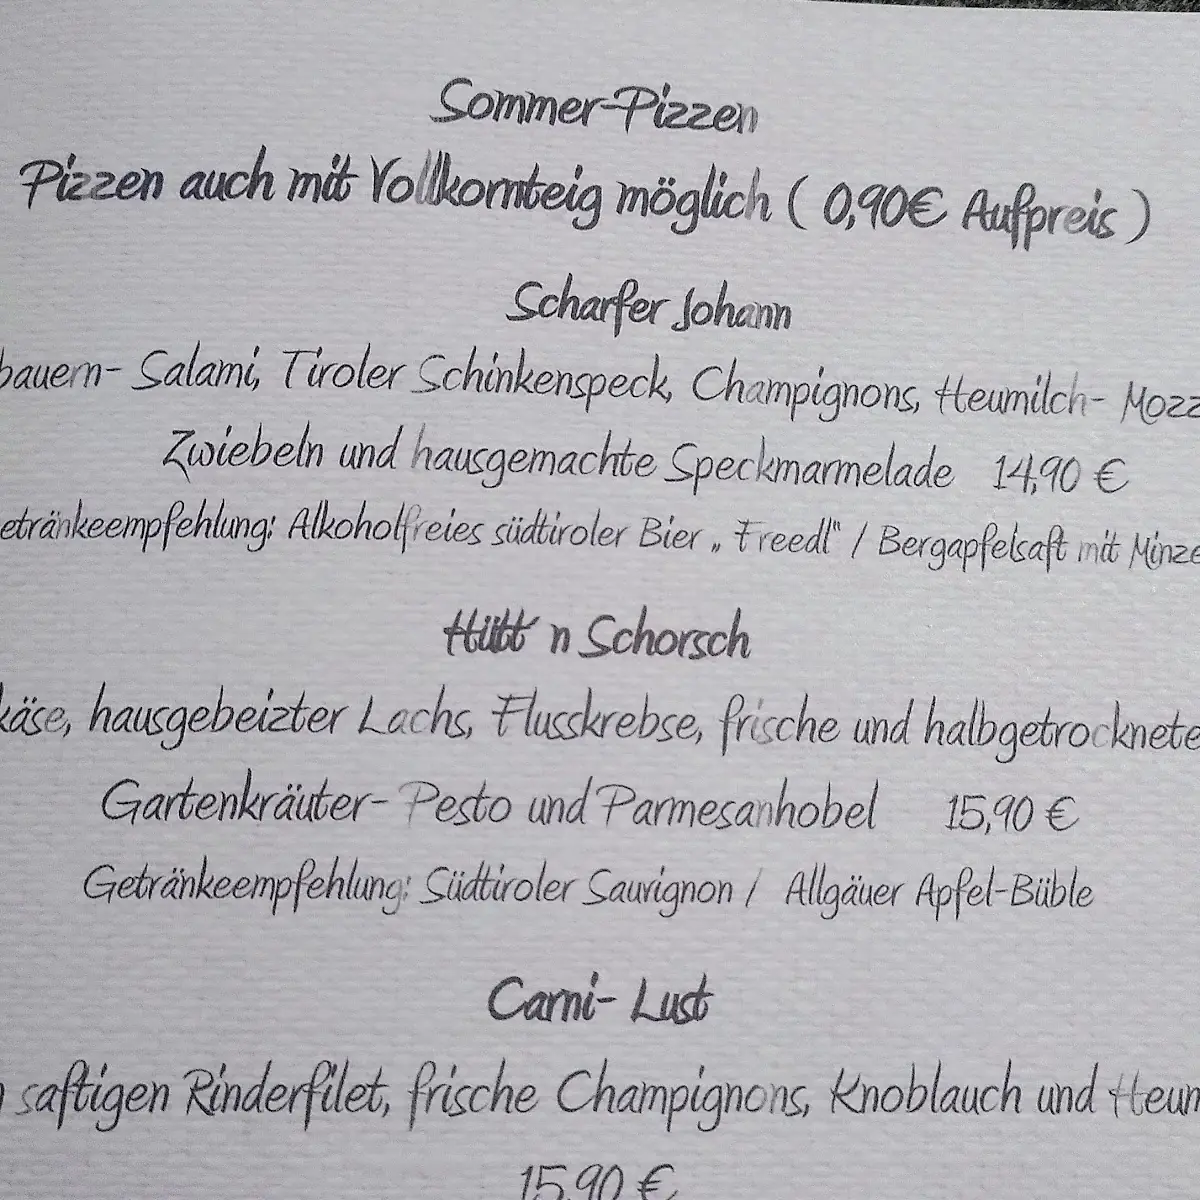 Sommer-Pizzen
Pizzen auch mit Vollkornteig möglich ( 0,90€ Aufpreis )
Scharfer Johann
bauern- Salami, Tiroler Schinkenspeck, Champignons, Heumilch- Mozz
Zwiebeln und hausgemachte Speckmarmelade 14,90 €
etränkeempfehlung: Alkoholfreies südtiroler Bier „ Freedl" / Bergapfelsaft mit Minze
Hütt´n Schorsch
käse, hausgebeizter Lachs, Flusskrebse, frische und halbgetrocknete
Gartenkräuter- Pesto und Parmesanhobel 15,90 €
Getränkeempfehlung: Südtiroler Sauvignon / Allgäuer Apfel-Büble
Carni- Lust
saftigen Rinderfilet, frische Champignons, Knoblauch und Heum
15,90 €